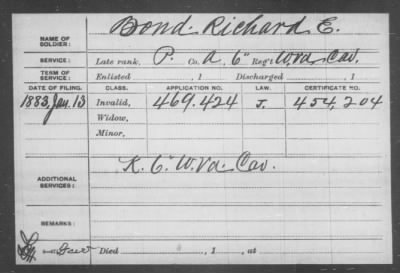 NAME OF SOLDIER: Bond Richard E.
SERVICE: Late rank, P. Co. A, 6" Reg't W.Va. Cav.
TERM OF SERVICE: Enlisted , 1 Discharged , 1
DATE OF FILING. CLASS. APPLICATION NO. LAW. CERTIFICATE NO.
1883, Jan. 13 Invalid, 469.424 J. 454,204
Widow,
Minor,
ADDITIONAL SERVICES: K. 6" W.Va. Cav.
REMARKS:
Died , 1 , at